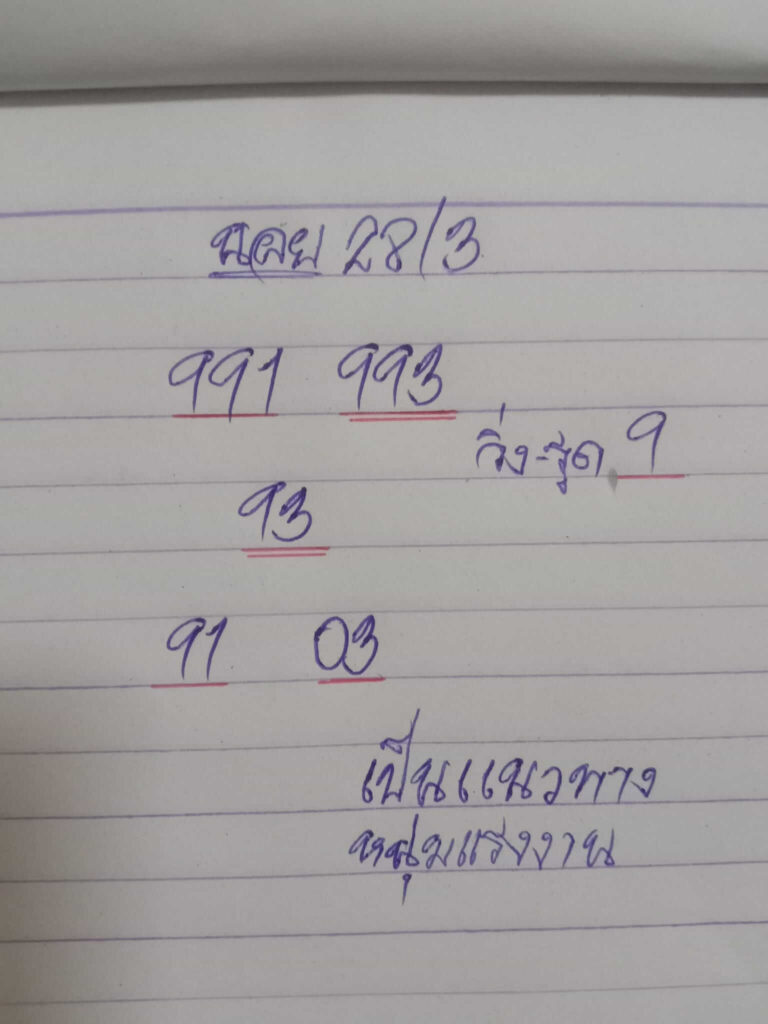 ฉอย 28/3
991 993
วิ่ง-รูด 9
93
91 03
เป็นแนวทาง
หนุ่มแรงงาน